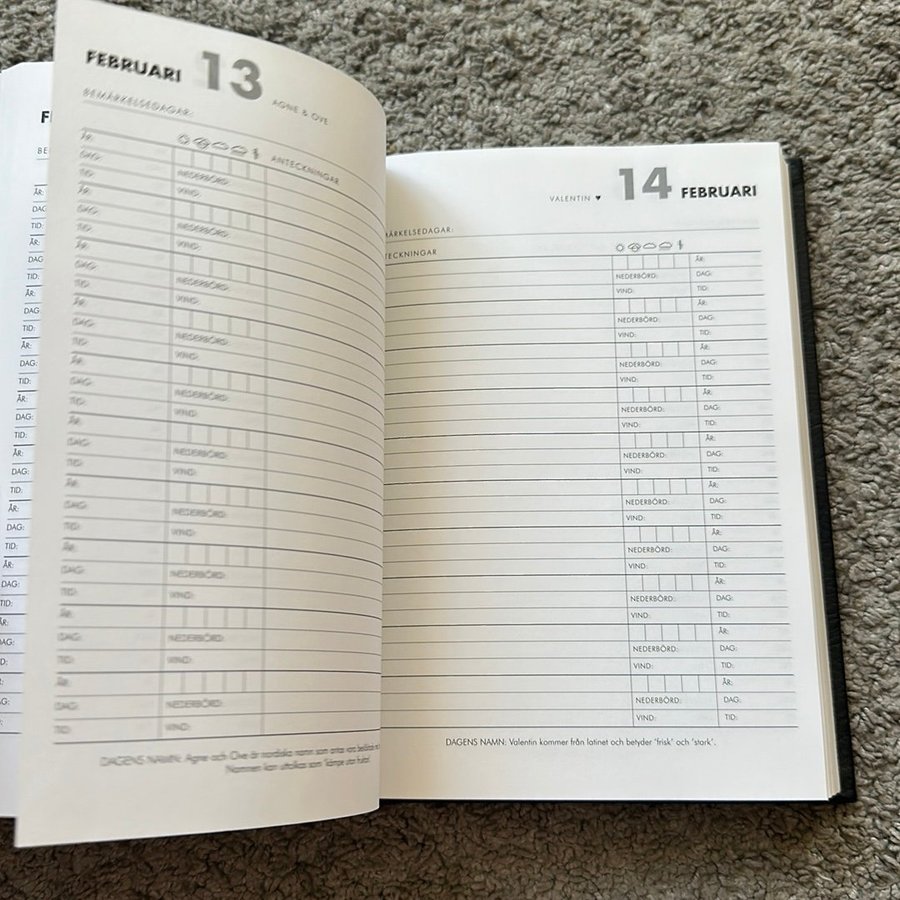 F
BE
ÅR:
DAG
TID:
ÅR:
DAG
TID:
ÅR:
DAG:
TID:
ÅR:
DAG:
TID:
ÅR:
DAG:
TID:
ÅR:
DAG:
TID:
ÅR:
DAG:
TID:
ÅR:
DAG:
TID:
AG:
D:
G:
FEBRUARI 13 AGNE & OVE
BEMÄRKELSEDAGAR:
ANTECKNINGAR
ÅR:
DAG: NEDERBÖRD:
TID: VIND:
ÅR:
DAG: NEDERBÖRD:
TID: VIND:
ÅR:
DAG: NEDERBÖRD:
TID: VIND:
ÅR:
DAG: NEDERBÖRD:
TID: VIND:
ÅR:
DAG: NEDERBÖRD:
TID: VIND:
ÅR:
DAG: NEDERBÖRD:
TID: VIND:
ÅR:
DAG: NEDERBÖRD:
TID: VIND:
ÅR:
DAG: NEDERBÖRD:
TID: VIND:
ÅR:
DAG: NEDERBÖRD:
TID: VIND:
ÅR:
DAG: NEDERBÖRD:
TID: VIND:
DAGENS NAMN: Agne och Ove är nordiska namn som antas vara
Namnen kan uttolkas som
VALENTIN ♥ 14 FEBRUARI
ÄRKELSEDAGAR:
TECKNINGAR
ÅR:
NEDERBÖRD: DAG:
VIND: TID:
ÅR:
NEDERBÖRD: DAG:
VIND: TID:
ÅR:
NEDERBÖRD: DAG:
VIND: TID:
ÅR:
NEDERBÖRD: DAG:
VIND: TID:
ÅR:
NEDERBÖRD: DAG:
VIND: TID:
ÅR:
NEDERBÖRD: DAG:
VIND: TID:
ÅR:
NEDERBÖRD: DAG:
VIND: TID:
ÅR:
NEDERBÖRD: DAG:
VIND: TID:
ÅR:
NEDERBÖRD: DAG:
VIND: TID:
ÅR:
NEDERBÖRD: DAG:
VIND: TID:
DAGENS NAMN: Valentin kommer från latinet och betyder "frisk" och "stark".